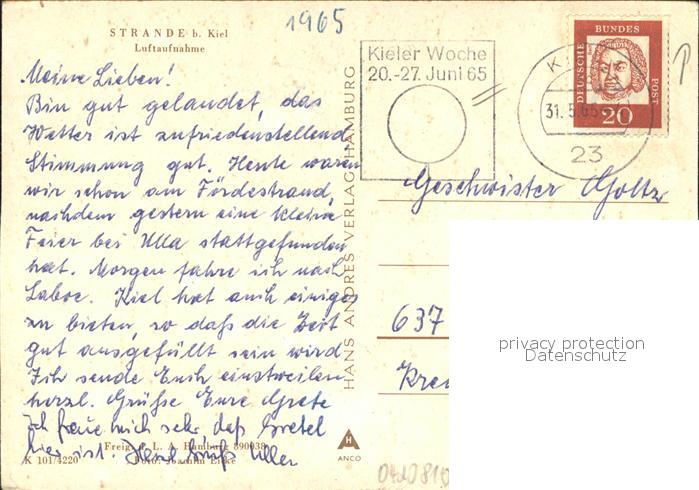 1965
STRANDE b. Kiel
Luftaufnahme
Meine Lieben!
Bin gut gelandet, das
Wetter ist zufriedenstellend
Stimmung gut. Heute waren
wir schon am Fördestrand,
nachdem gestern eine kleine
Feier bei Ulla stattgefunden
hat. Morgen fahre ich nach
Laboe. Kiel hat auch einiges
zu bieten, so daß die Zeit
gut ausgefüllt sein wird
Ich sende Euch einstweilen
herzl. Grüße Eure Grete
Ich freue mich sehr, daß Gretel
hier ist. Herzl. Gruß
Freig. d. L. A. Hamburg 890038
K 101/4220 Foto: Joachim Eicke
HANS ANDRES VERLAG HAMBURG
H
ANCO
Kieler Woche
20.-27. Juni 65
31.5.65
23
DEUTSCHE
BUNDES
POST
20
Geschwister Goltz
637
privacy protection
Datenschutz